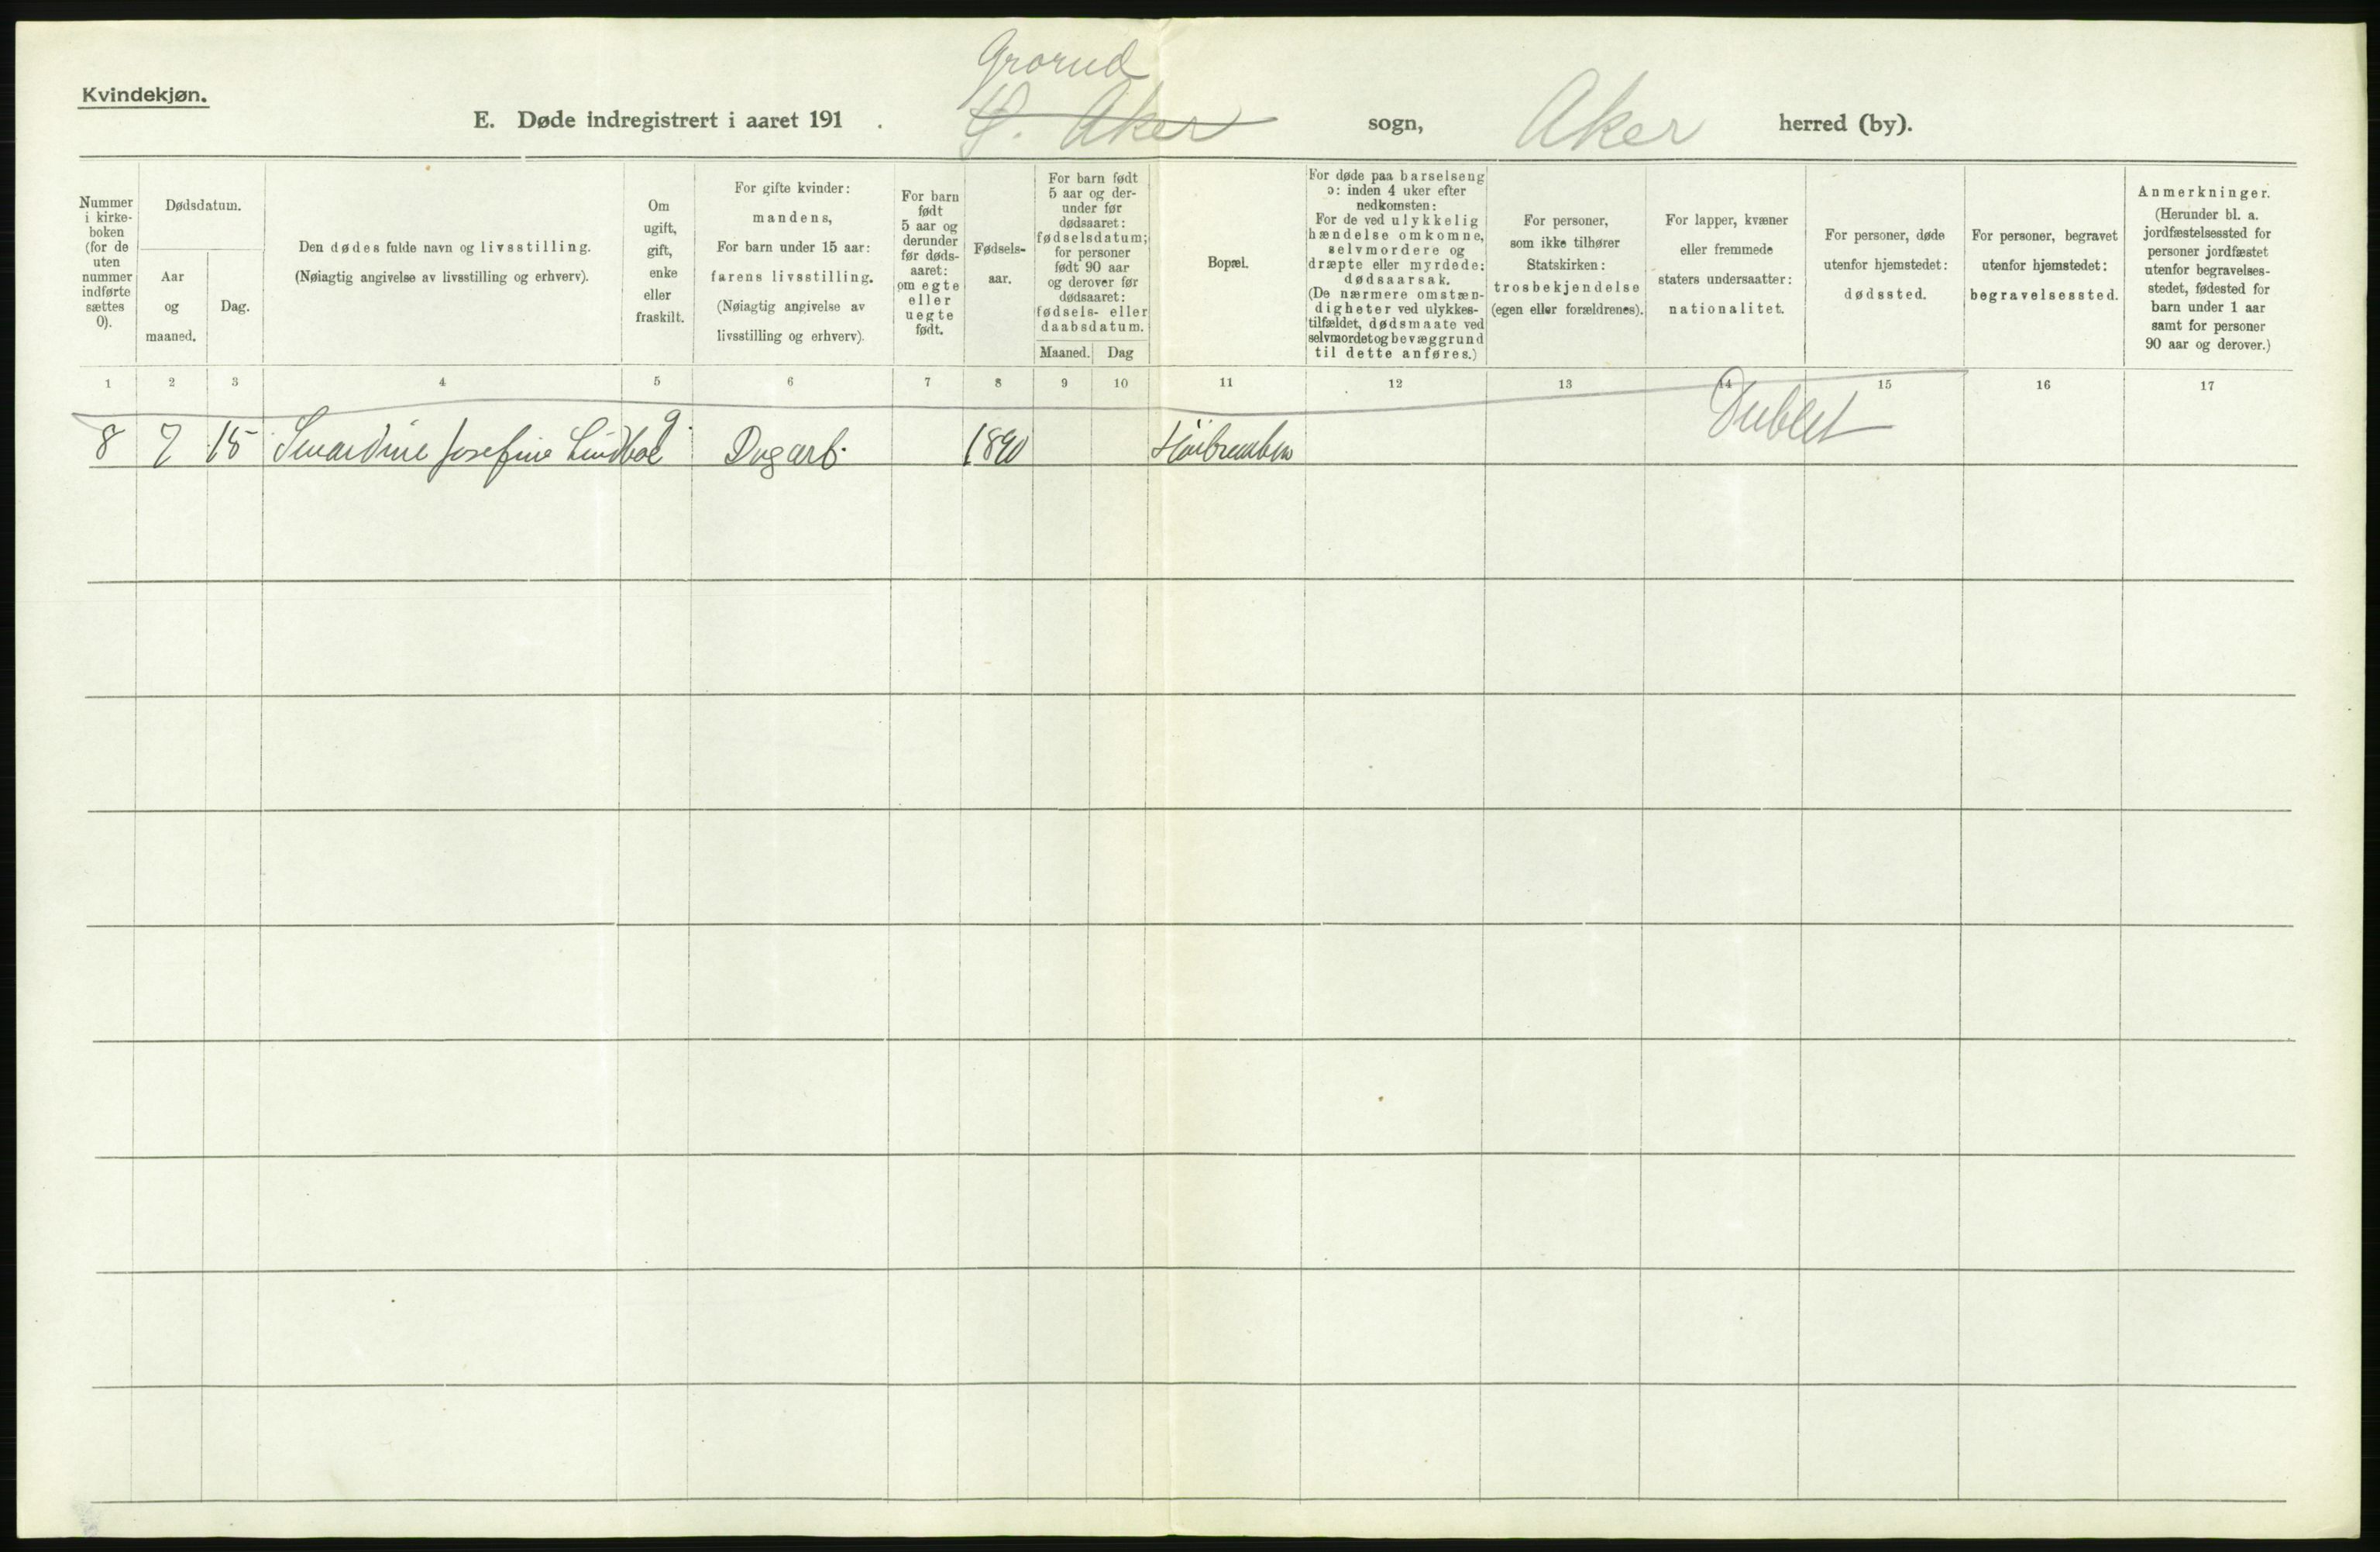 Kvindekjøn.
Grorud
E. Døde indregistrert i aaret 191 . Ø. Aker sogn, Aker herred (by).
Nummer
i kirke-
boken
(for de
uten
nummer
indførte
sættes
0).
Dødsdatum.
Aar
og
maaned.
Dag.
Den dødes fulde navn og livsstilling.
(Nøiagtig angivelse av livsstilling og erhverv).
Om
ugift,
gift,
enke
eller
fraskilt.
For gifte kvinder:
mandens,
For barn under 15 aar:
farens livsstilling.
(Nøiagtig angivelse av
livsstilling og erhverv).
For barn
født
5 aar og
derunder
før døds-
aaret:
om egte
eller
uegte
født.
Fødsels-
aar.
For barn født
5 aar og der-
under før
dødsaaret:
fødselsdatum;
for personer
født 90 aar
og derover før
dødsaaret:
fødsels- eller
daabsdatum.
Maaned. Dag
Bopæl.
For døde paa barselseng
ɔ: inden 4 uker efter
nedkomsten:
For de ved ulykkelig
hændelse omkomne,
selvmordere og
dræpte eller myrdede:
dødsaarsak.
(De nærmere omstæn-
digheter ved ulykkes-
tilfældet, dødsmaate ved
selvmordet og bevæggrund
til dette anføres.)
For personer,
som ikke tilhører
Statskirken:
trosbekjendelse
(egen eller forældrenes).
For lapper, kvæner
eller fremmede
staters undersaatter:
nationalitet.
For personer, døde
utenfor hjemstedet:
dødssted.
For personer, begravet
utenfor hjemstedet:
begravelsessted.
Anmerkninger.
(Herunder bl. a.
jordfæstelsessted for
personer jordfæstet
utenfor begravelses-
stedet, fødested for
barn under 1 aar
samt for personer
90 aar og derover.)
1 2 3 4 5 6 7 8 9 10 11 12 13 14 15 16 17
8 7 15 Josefine g. Dagarb. 1890 Dublet